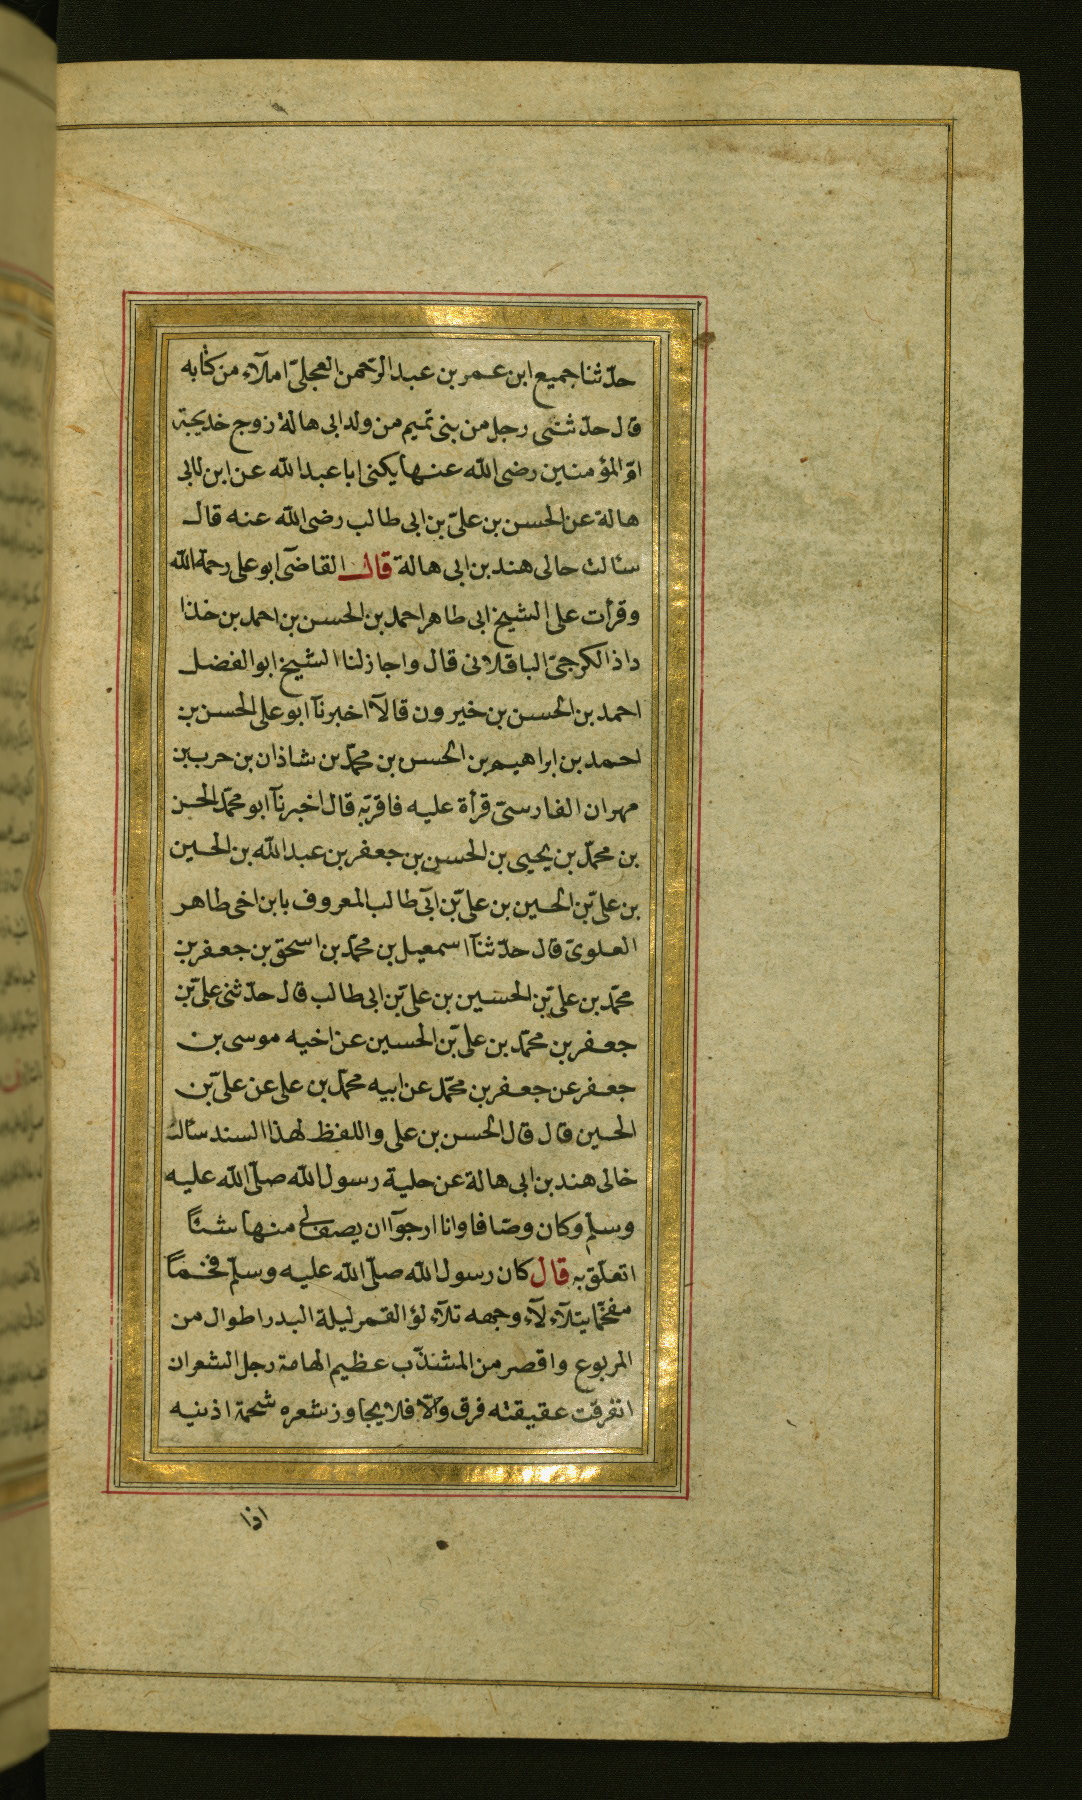 حدّثنا جميع ابن عمر بن عبد الرّحمن العجلىّ املآء من كتابه
قال حدّثنى رجل من بنى تميم من ولد ابى هالة زوج خديجة
امّ المؤمنين رضى الله عنها يكنى ابا عبد الله عن ابن لابى
هالة عن الحسن بن علىّ بن ابى طالب رضى الله عنه قال
سئالت خالى هند بن ابى هالة قال القاضى ابو على رحمة الله
وقرأت على الشيخ ابى طاهر احمد بن الحسن بن احمد بن خذا
داذ الكرجىّ الباقلانى قال واجاز لنا الشيخ ابو الفضل
احمد بن الحسن بن خيرون قالآ اخبرنآ ابو على الحسن بن
احمد بن ابراهيم بن الحسن بن محمّد بن شاذان بن حرب بن
مهران الفارسىّ قرأة عليه فاقربّه قال اخبرنآ ابو محمّد الحسن
بن محمّد بن يحيى بن الحسن بن جعفر بن عبد الله بن الحسين
بن علىّ بن الحسين بن علىّ بن ابى طالب المعروف بابن اخى طاهر
العلوىّ قال حدّثنآ اسمعيل بن محمّد بن اسحق بن جعفر بن
محمّد بن علىّ بن الحسين بن علىّ بن ابى طالب قال حدّثنى علىّ بن
جعفر بن محمّد بن علىّ بن الحسين عن اخيه موسى بن
جعفر عن جعفر بن محمّد عن ابيه محمّد بن على عن علىّ بن
الحسين قال قال الحسن بن على واللفظ لهذا السند سئالت
خالى هند بن ابى هالة عن حلية رسول الله صلّى الله عليه
وسلّم وكان وصّافا وانا ارجوآ ان يصف لى منها شئاً
اتعلّق به قال كان رسول الله صلّى الله عليه وسلّم فخماً
مفخّما يتلآء لآء وجهه تلآء لؤ القمر ليلة البدر اطوال من
المربوع واقصر من المشذّب عظيم الهامة رجل الشعر ان
انفرقت عقيقته فرق والّا فلا يجاوز شعره شحمة اذنيه
اذا